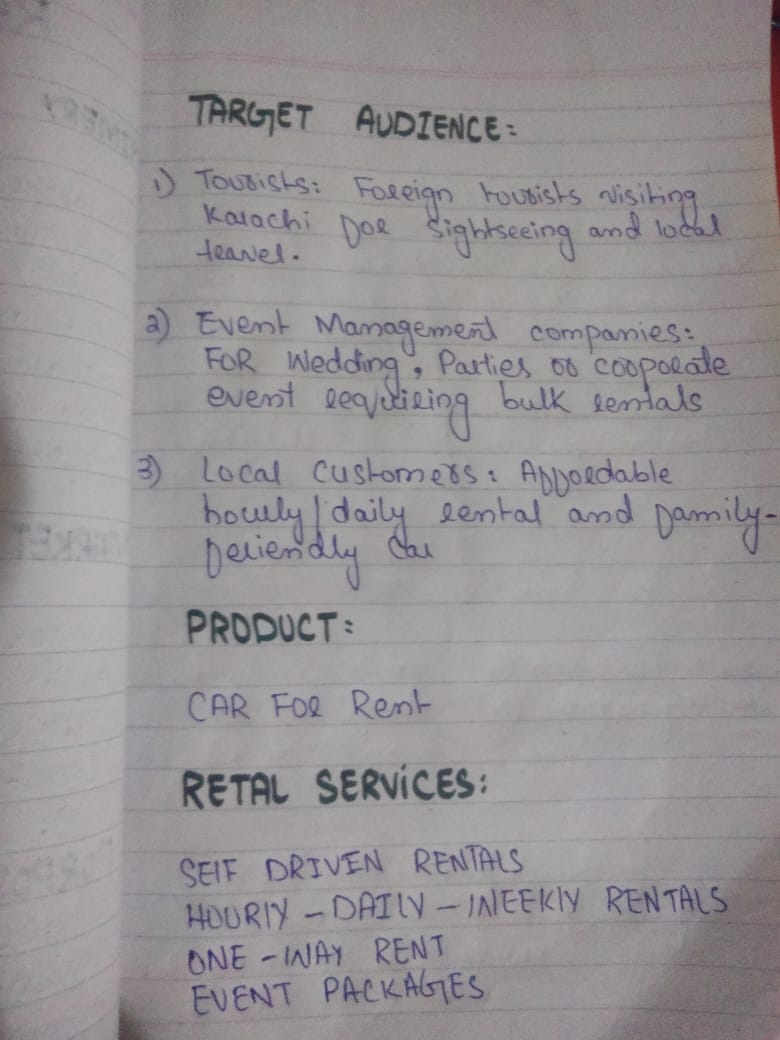 TARGET AUDIENCE:
1) Tourists: Foreign tourists visiting
Karachi for sightseeing and local
travel.
2) Event Management companies:
FOR Wedding, Parties or cooporate
event requiring bulk rentals
3) Local Customers: Affordable
hourly/daily rental and family-
friendly Car
PRODUCT:
CAR FOR Rent
RETAL SERVICES:
SELF DRIVEN RENTALS
HOURLY - DAILY - WEEKLY RENTALS
ONE - WAY RENT
EVENT PACKAGES